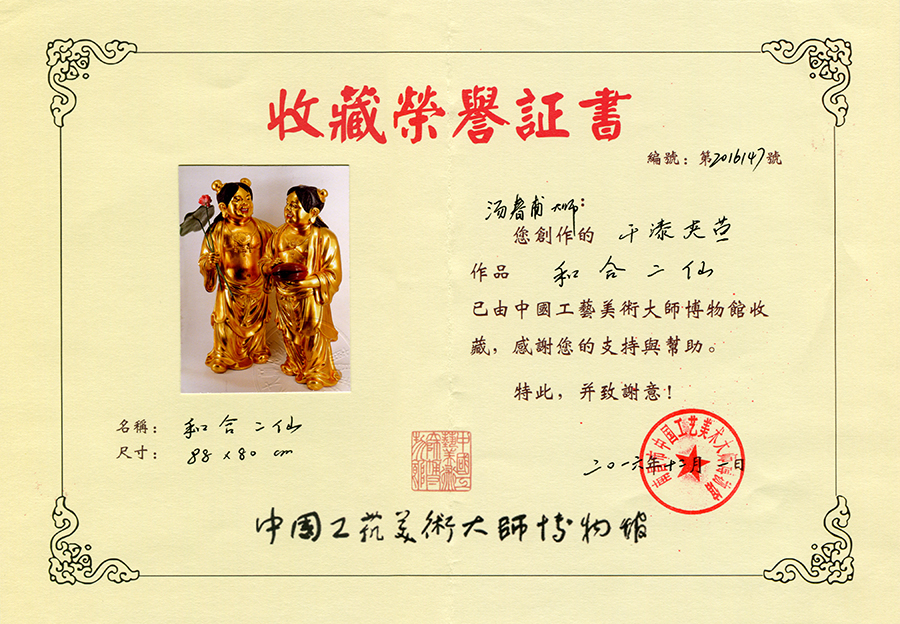 收藏榮譽証書
編號：第2016147號
汤春甫大师：
您創作的 干漆夹苎
作品 和合二仙
已由中國工藝美術大師博物館收
藏，感謝您的支持與幫助。
特此，并致謝意！
名稱： 和合二仙
尺寸： 88×80 cm
二〇一六年十二月一日
莆田市中国工艺美术大师博物馆
中国工艺美術大師博物馆